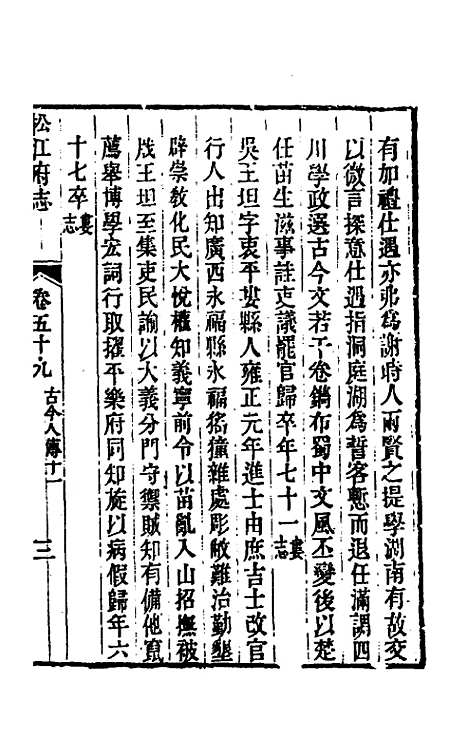 有加禮仕遇亦弗爲謝時人兩賢之提學湖南有故交
以微言探意仕遇指洞庭湖爲誓客慙而退任滿調四
川學政選古今文若干卷鋟布蜀中文風丕變後以楚
任苗生滋事詿吏議罷官歸卒年七十一婁志
吳王坦字衷平婁縣人雍正元年進士由庶吉士改官
行人出知廣西永福縣永福猺獞雜處彫敝難治勤墾
辟崇敎化民大悅權知義寧前令以苗亂入山招撫被
戕王坦至集吏民諭以大義分門守禦賊知有備他竄
薦舉博學宏詞行取擢平樂府同知旋以病假歸年六
十七卒婁志
松江府志
卷五十九
古今人傳十一
三